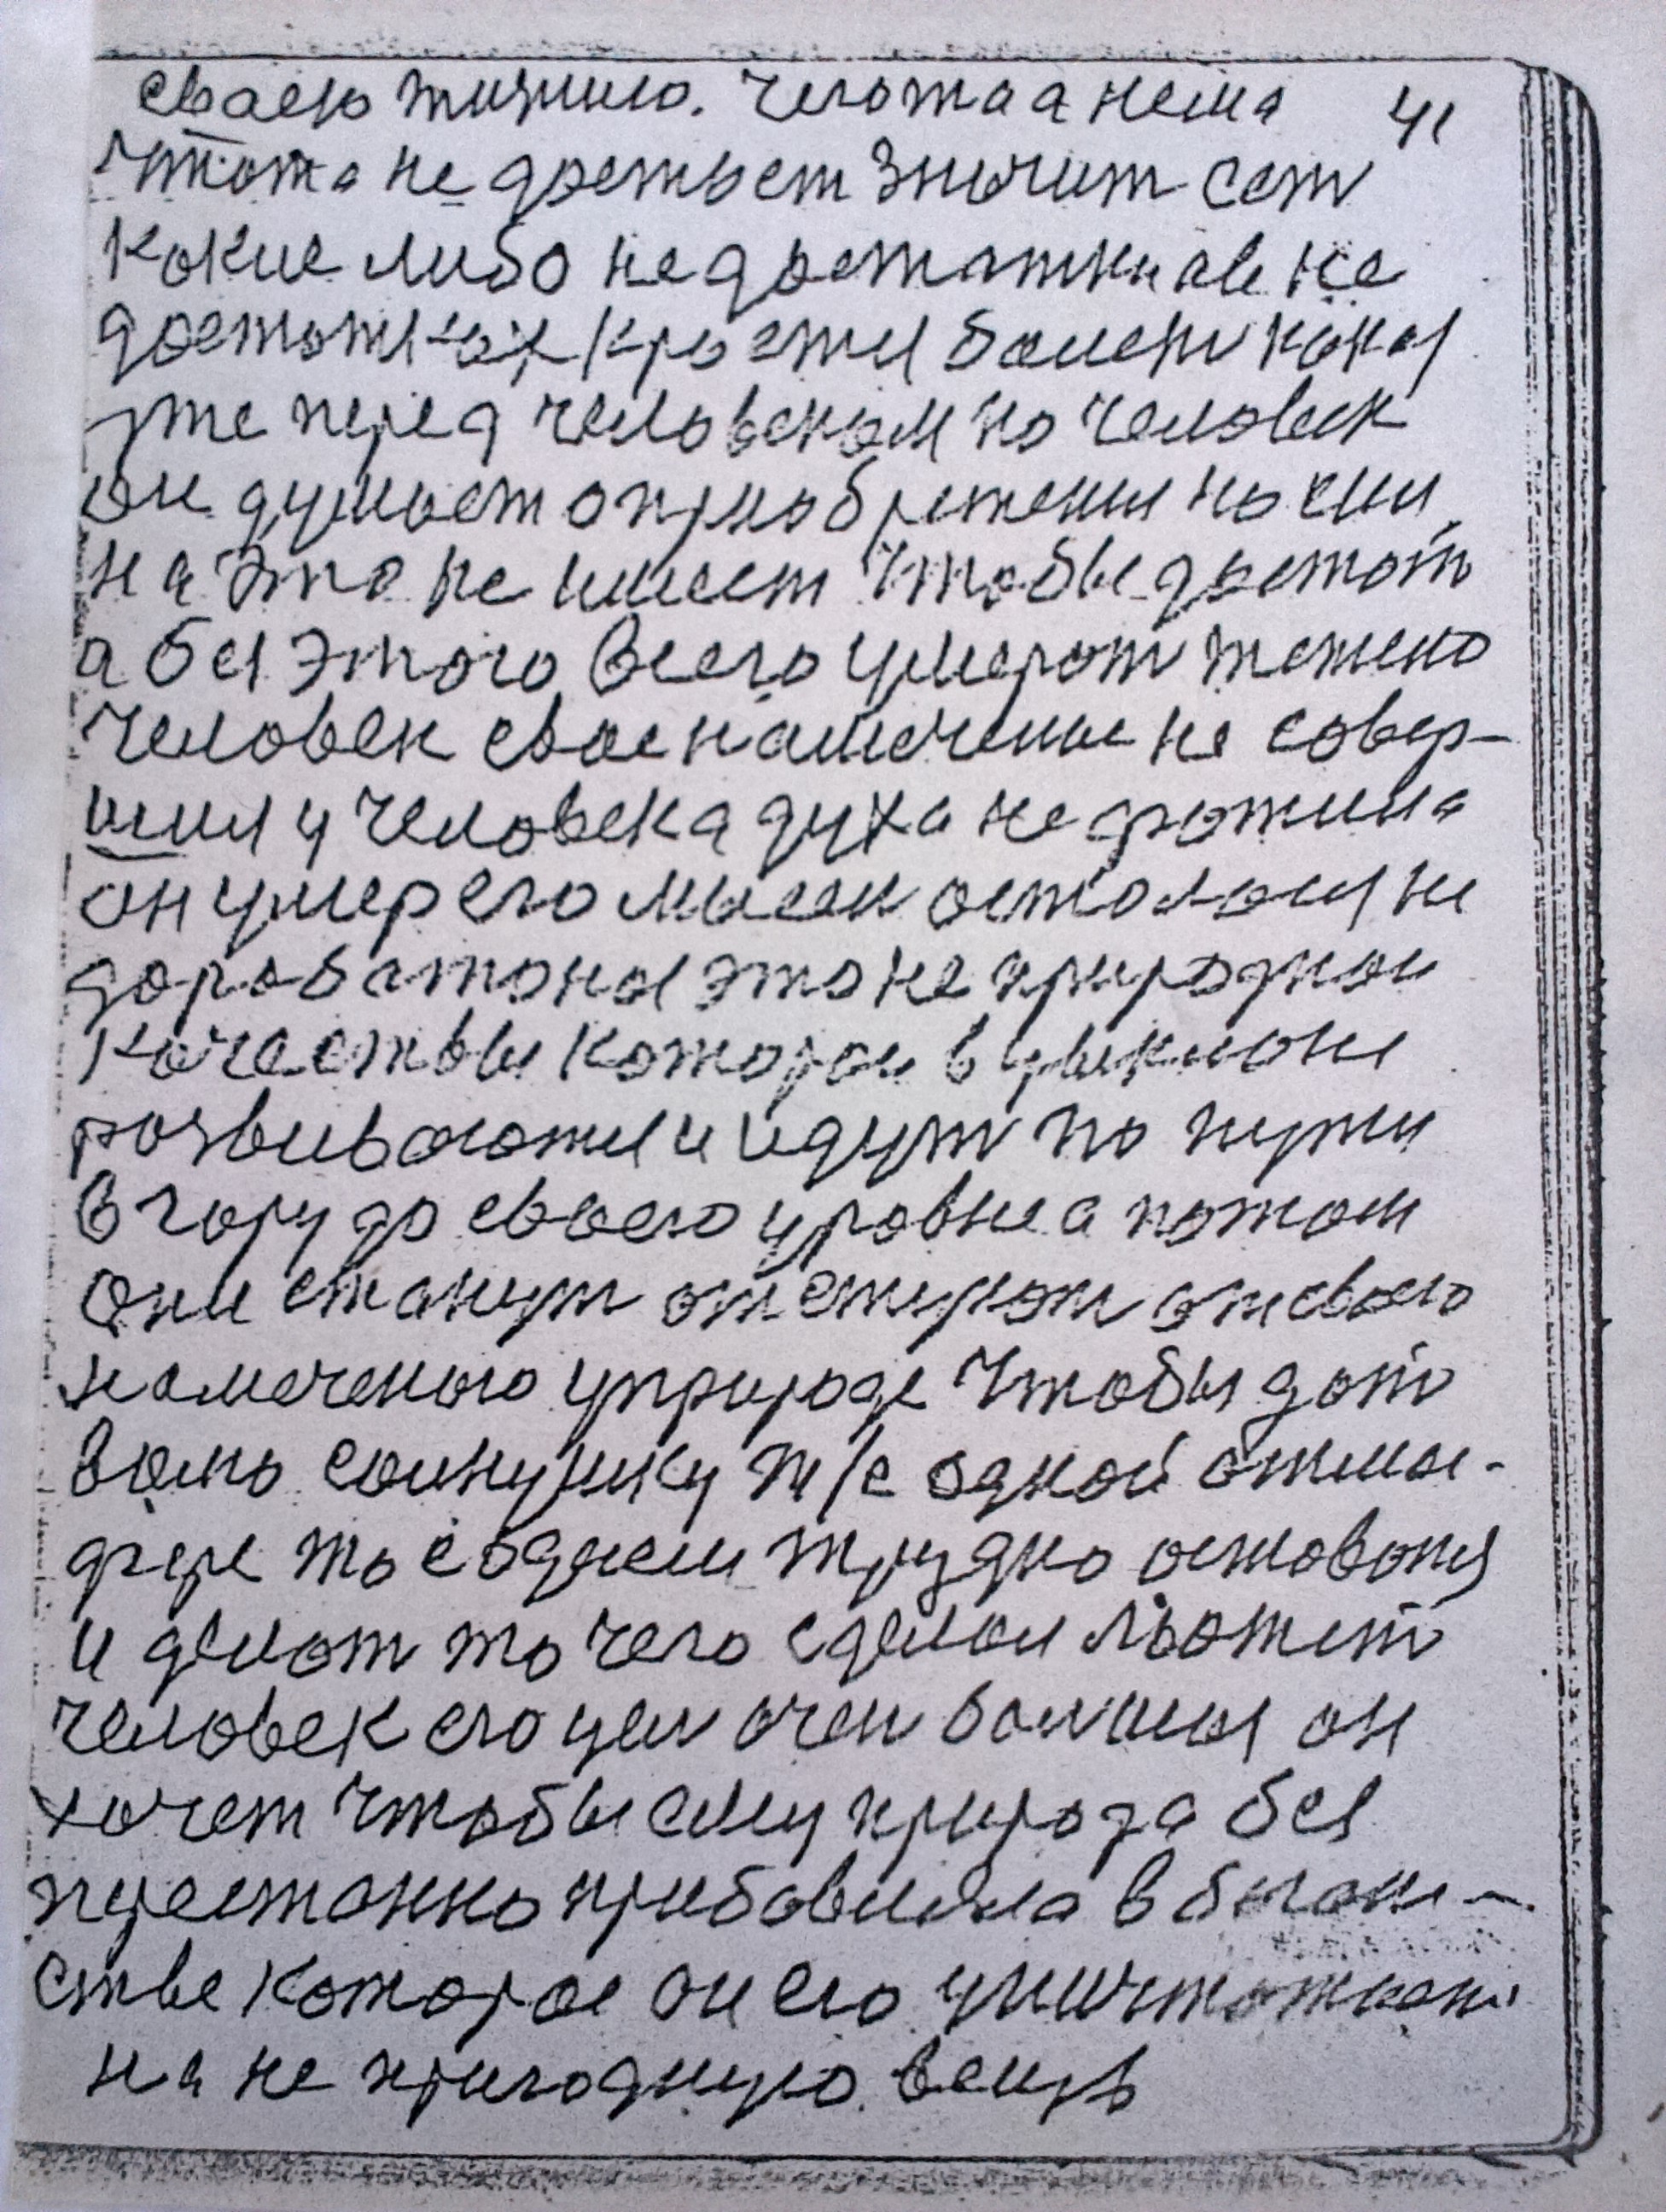 сваею жизнию. Чегота а нема 41
чтота не достает значит сет
какие либо недостатки а в не
достатках кроетя болезн какая
уже перед человеком но человек
он думает о приобретении но сил
на это не имеет чтобы достат
а без этого всего умерат тежело
человек свое намечение не совер-
шил у человека духа не хватила
он умер его мысли осталася не
доработаная это не природнои
качествы которои в
развиваютя и идут по пути
в гору до своего уровне а потом
они станут отступат от своего
намеченого у природе чтобы дат
волю т/к одной атмос-
фере то с однем трудно оставатя
и делат то чего сделал может
человек его цел очен болшая он
хочет чтобы ему природа без
перестанно прибавляла в богат-
стве которое он его уничтожает
на не пригодную вещъ